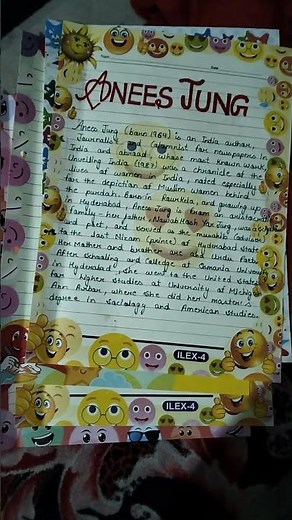 ANEES JUNG
Anees Jung (born 1964) is an India author,
Journalist and Columnist for newspapers in
India and abroad, whose most known work,
Unveiling India (1987) was a chronicle of the
lives of women in India, noted especially
for the depiction of Muslim women behind
the purdah. Born in Rourkela, and growing up
in Hyderabad, Anees Jung is from an aristocratic
family - her father, Nawab Hosh Yar Jung, was a
and poet, and served as the musahib (advisor)
to the last Nizam (prince) of Hyderabad State.
Her Mother and brother are also Urdu Poets.
After Schooling and Colledge at Osmania University
in Hyderabad, she went to the United States
for higher Studies at University of Michigan
Ann Arbor, where she did her master's
degree in sociology and American Studies.
ILEX-4
ILEX-4